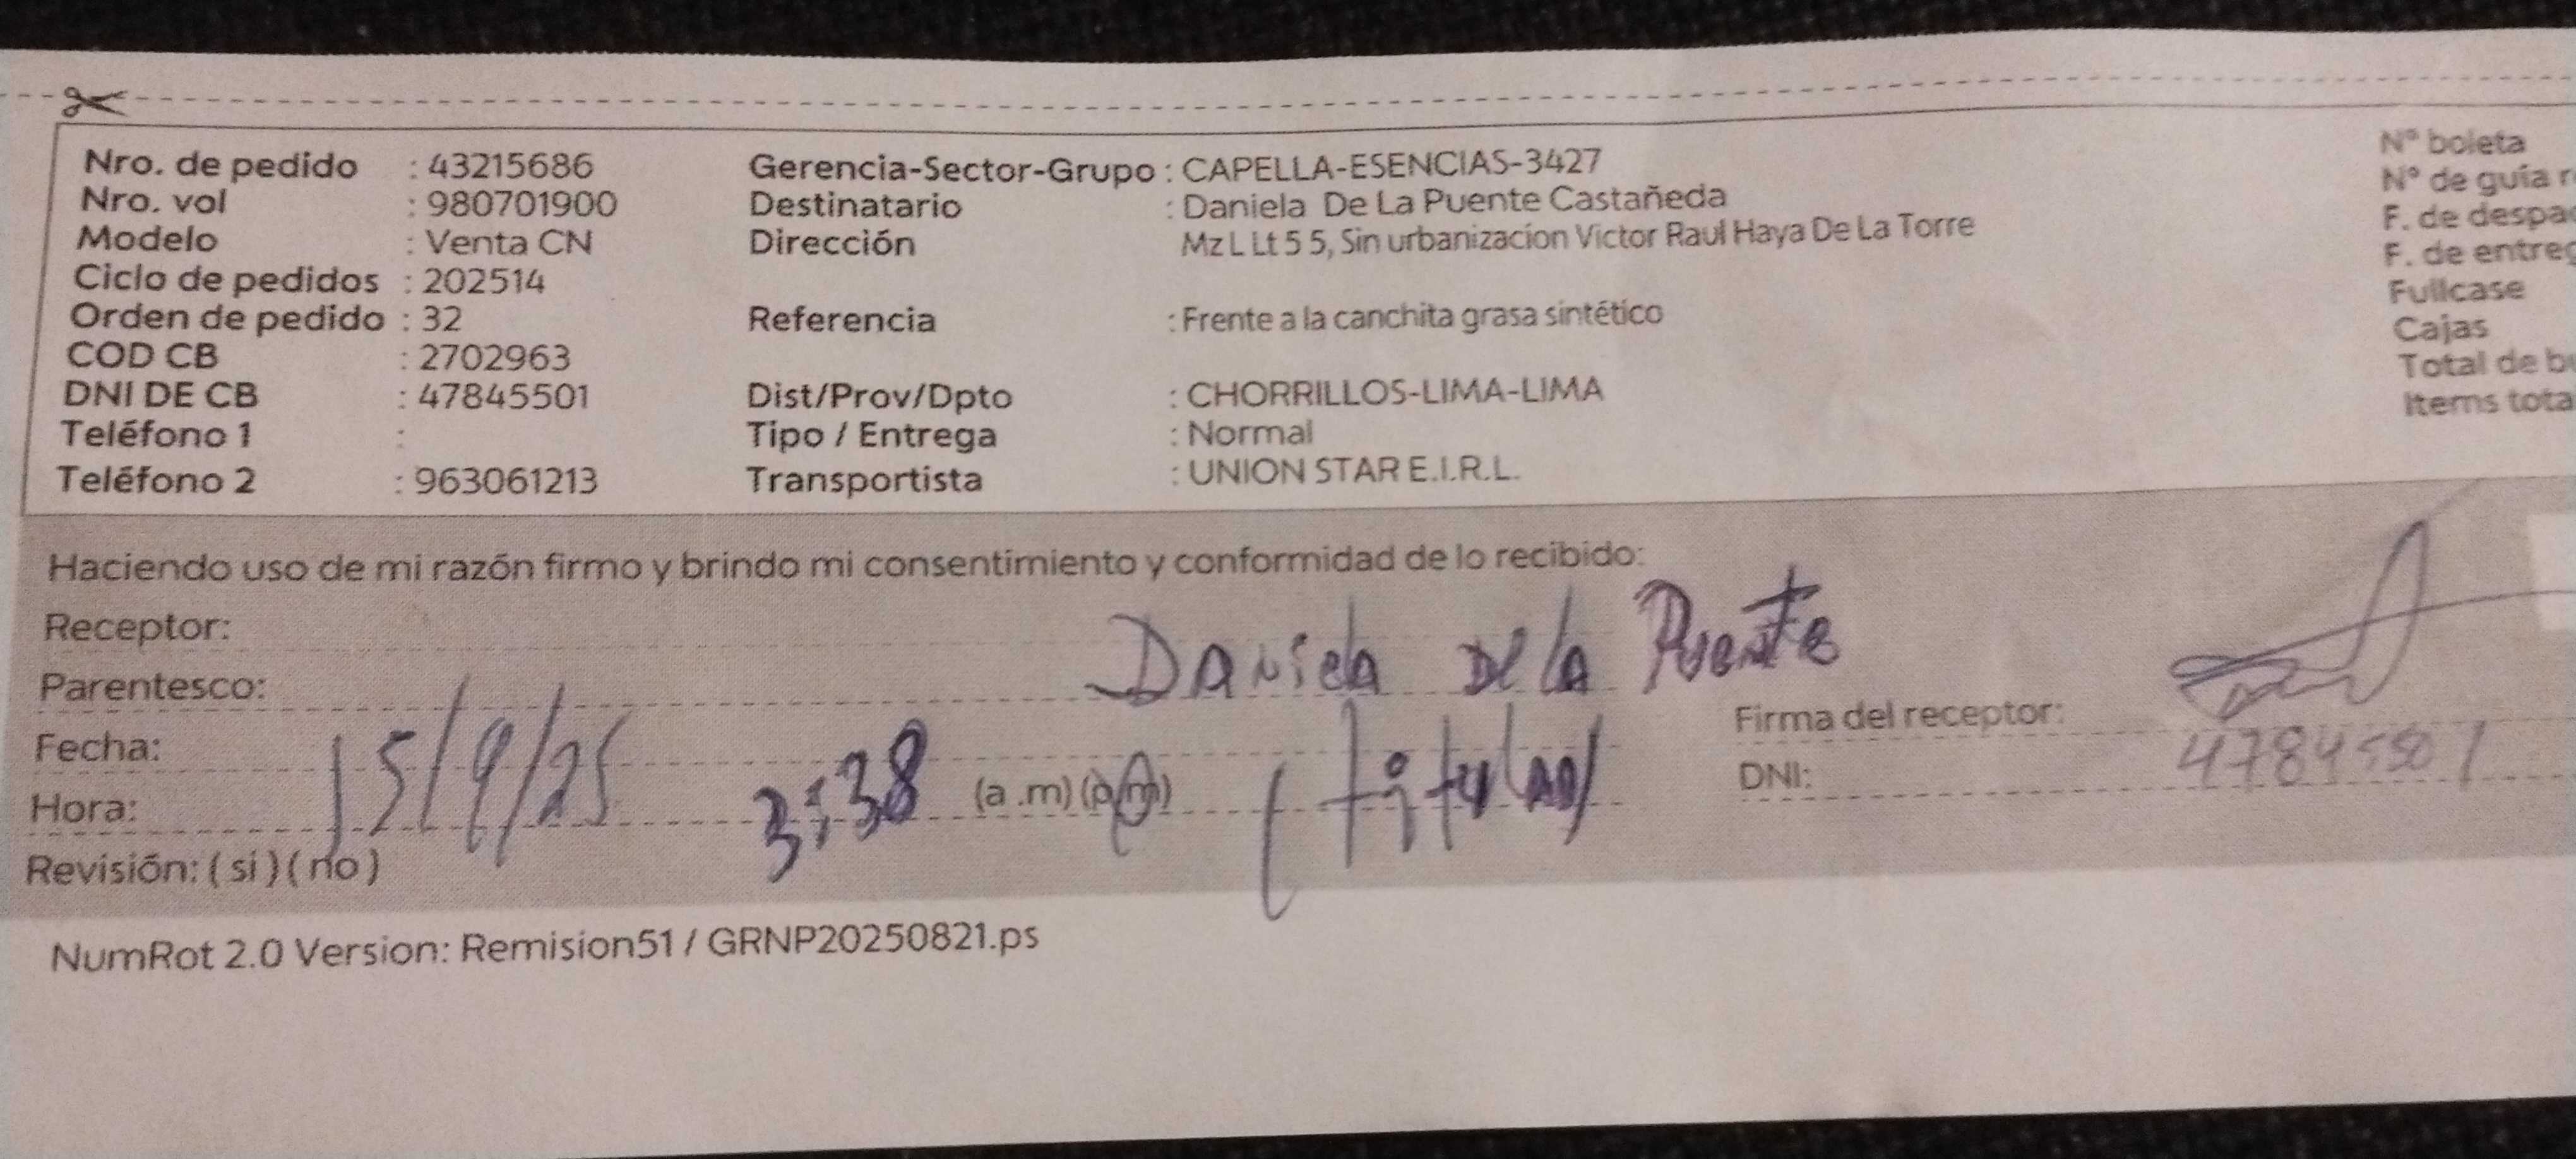 Nro. de pedido : 43215686 Gerencia-Sector-Grupo : CAPELLA-ESENCIAS-3427 N° boleta
Nro. vol : 980701900 Destinatario : Daniela De La Puente Castañeda N° de guía r
Modelo : Venta CN Dirección Mz L Lt 5 5, Sin urbanizacion Victor Raul Haya De La Torre F. de despa
Ciclo de pedidos : 202514 F. de entreg
Orden de pedido : 32 Referencia : Frente a la canchita grasa sintético Fullcase
COD CB : 2702963 Cajas
DNI DE CB : 47845501 Dist/Prov/Dpto : CHORRILLOS-LIMA-LIMA Total de b
Teléfono 1 : Tipo / Entrega : Normal Items tota
Teléfono 2 : 963061213 Transportista : UNION STAR E.I.R.L.
Haciendo uso de mi razón firmo y brindo mi consentimiento y conformidad de lo recibido:
Receptor: Daniela De la Puente
Parentesco:
Firma del receptor:
Fecha: 15/9/25 3:38 (a .m) (p.m) (titular)
Hora: DNI: 47845501
Revisión: ( si ) ( no )
NumRot 2.0 Version: Remision51 / GRNP20250821.ps